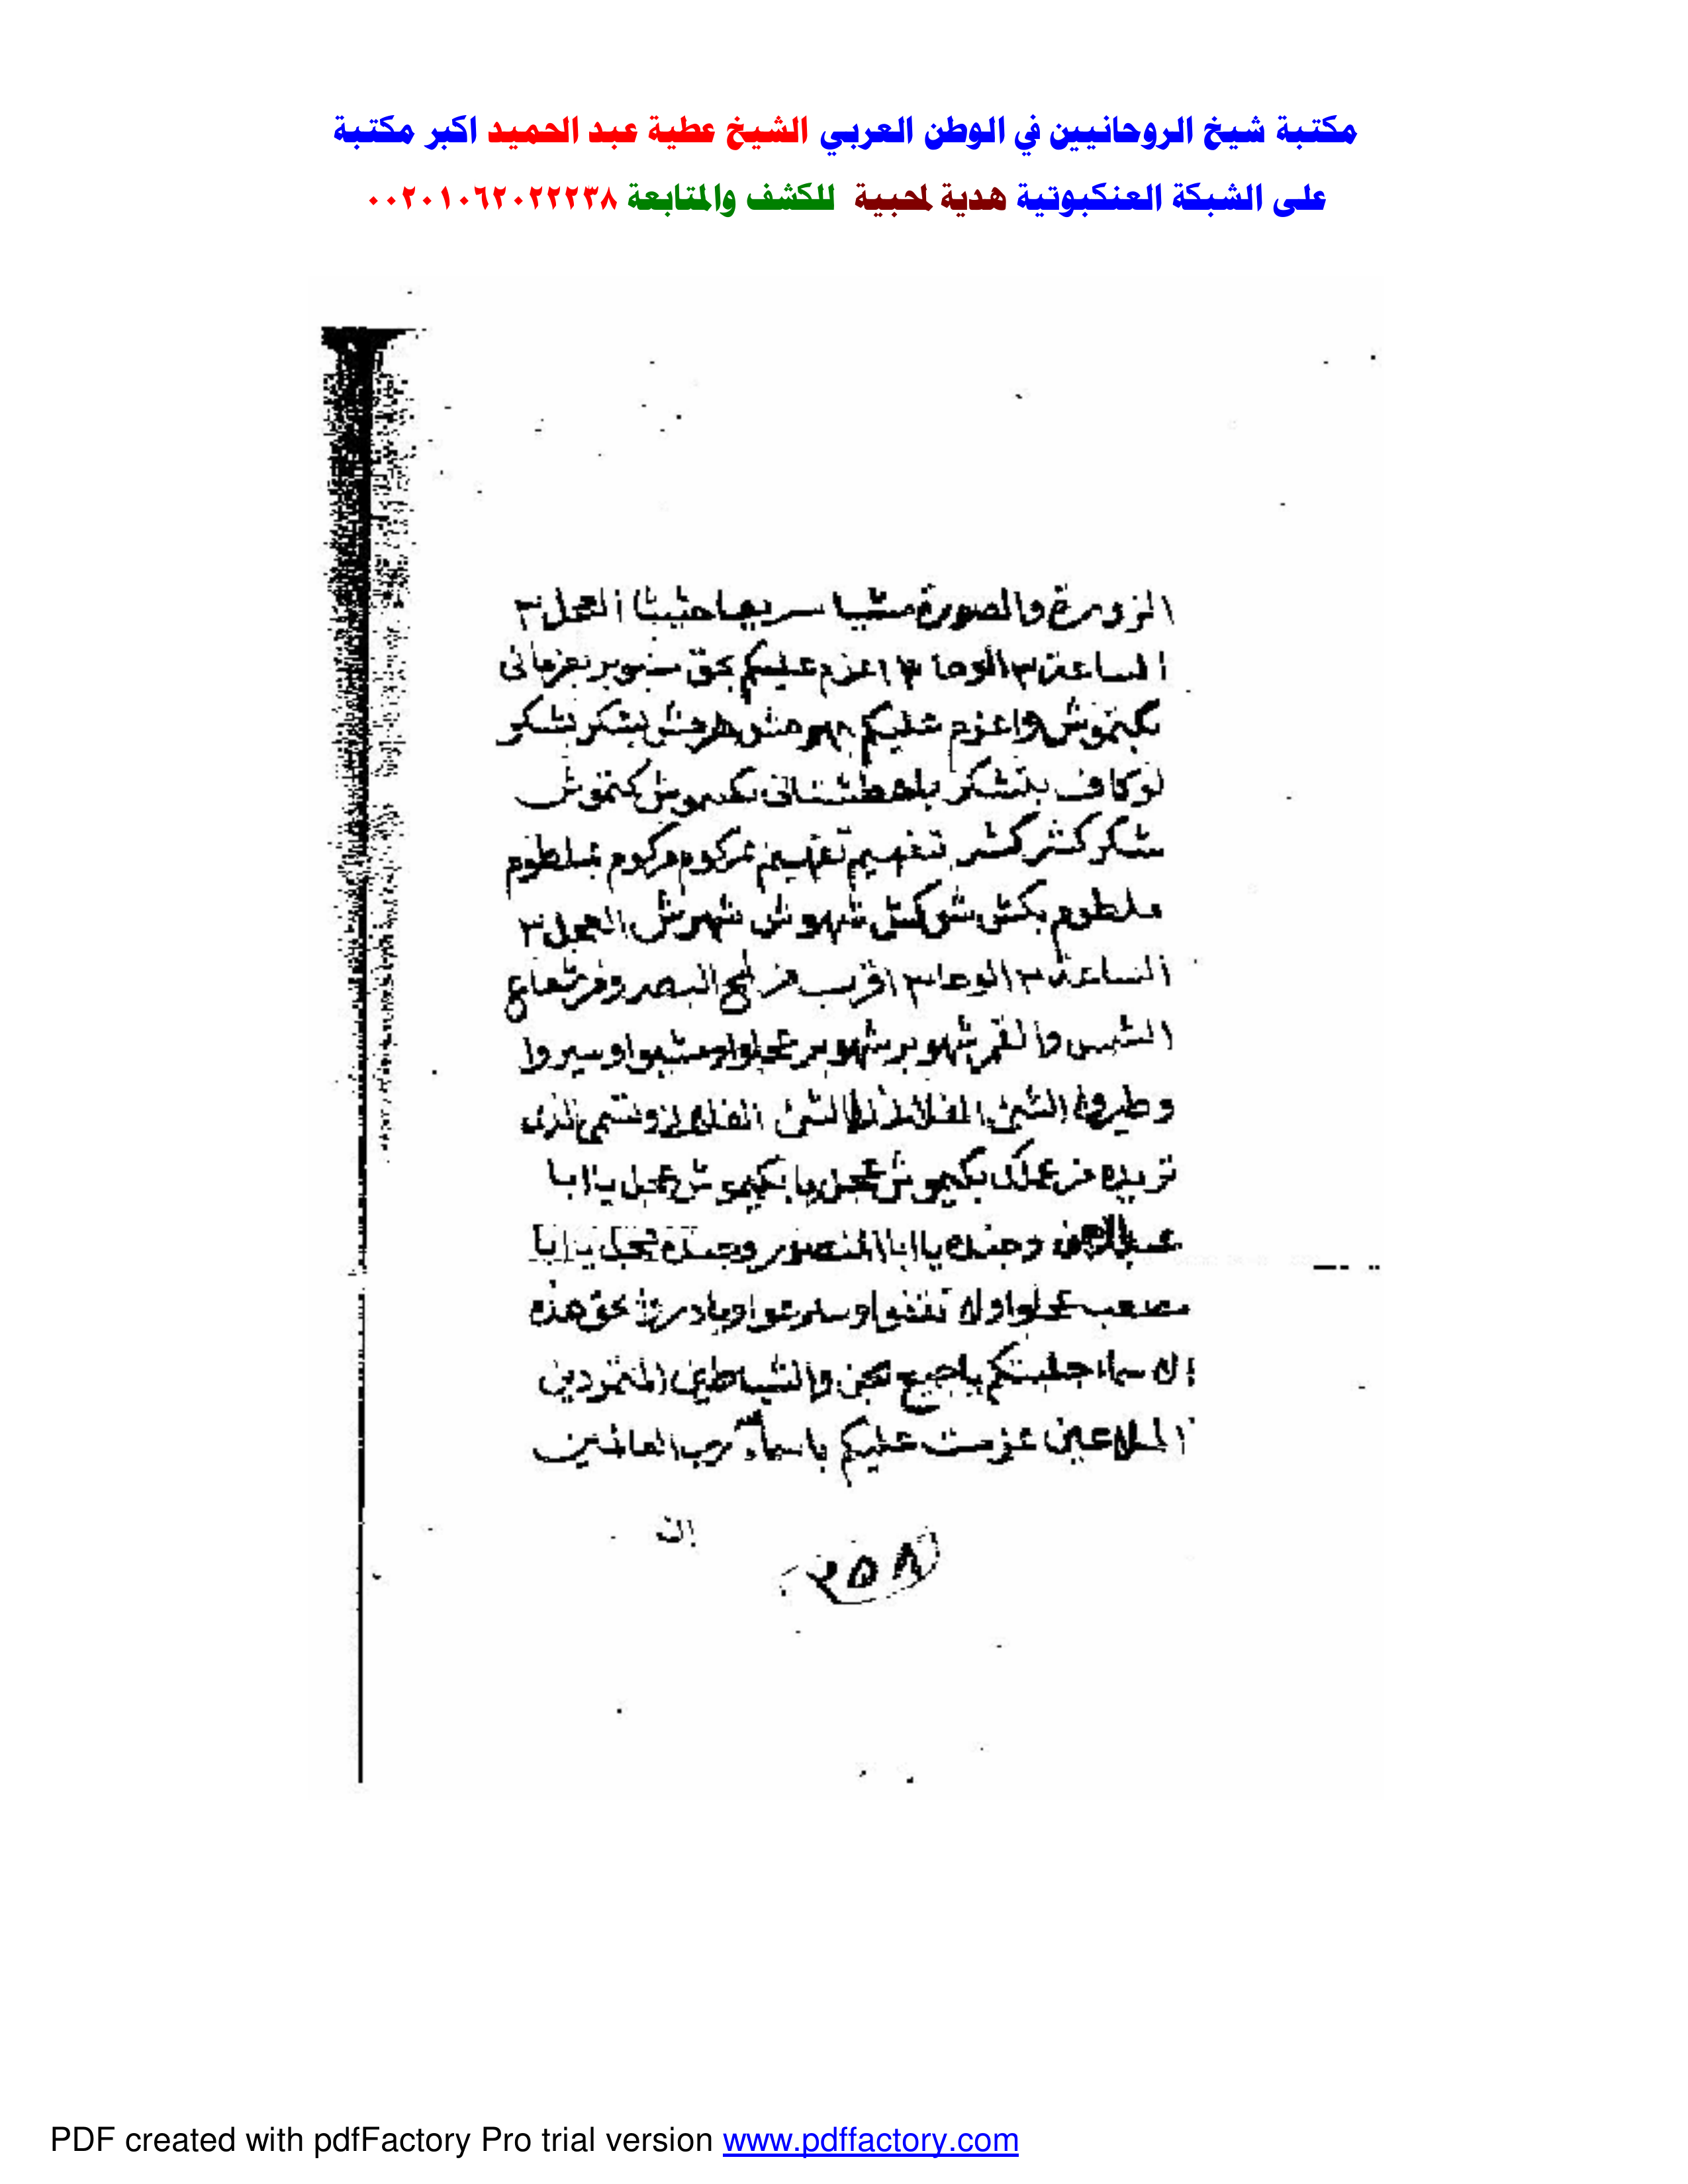 مكتبة شيخ الروحانيين في الوطن العربي الشيخ عطية عبد الحميد اكبر مكتبة
على الشبكة العنكبوتية هدية لمحبية للكشف والمتابعة ٠٠٢٠١٠٦٢٠٢٢٢٣٨
الزورة والصورة مشيا سريعا حثيثا العجل ٣
الساعة ٣ الوحا ٣ اعزم عليكم بحق
واعزم عليكم بشكر بشكر
لوكاف بتشكر كتموش
شكر كشر كشر مركوم مركوم
ملطوم بكش شوكش شهوش شهرش العجل ٣
الساعة ٣ الوحا ٣ اقرب من لمح البصر ومن شعاع
الشمس والقمر شهوبر شهوبر عجلوا وامشوا وسيروا
وطيروا الشئ الفلاني الشئ الفلاني وتسمى الذى
تريده من عملك بكيموش عجل يا بكيموش عجل يا ابا
عبد الرحمن وجنده يا ابا المنصور وجنده عجل يا ابا
مصعب عجلوا ولا تقفوا وسارعوا وبادروا بحق هذه
الاسماء جلبتكم يا جميع الجن والشياطين المتمردين
الملاعين عزمت عليكم باسماء رب العالمين
ال
(٢٥٨)
PDF created with pdfFactory Pro trial version www.pdffactory.com